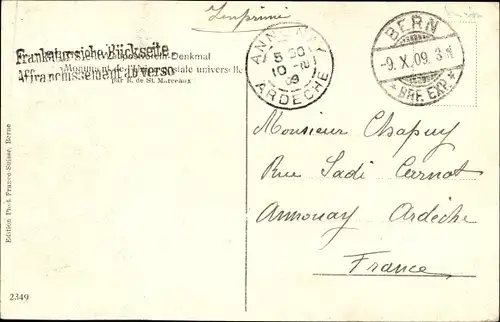 Imprimé
Frankatur siehe Rückseite
Affranchissement au verso
Weltpostverein-Denkmal
Monument de l'Union postale universelle
par R. de St. Marceaux
ANNONAY
5 30
10 -10
09
ARDÈCHE
BERN
-9. X. 09. 3
* BRF. EXP. *
Monsieur Chapuy
Rue Sadi Carnot
Annonay Ardèche
France
Edition Phot. Franco-Suisse, Berne
2349